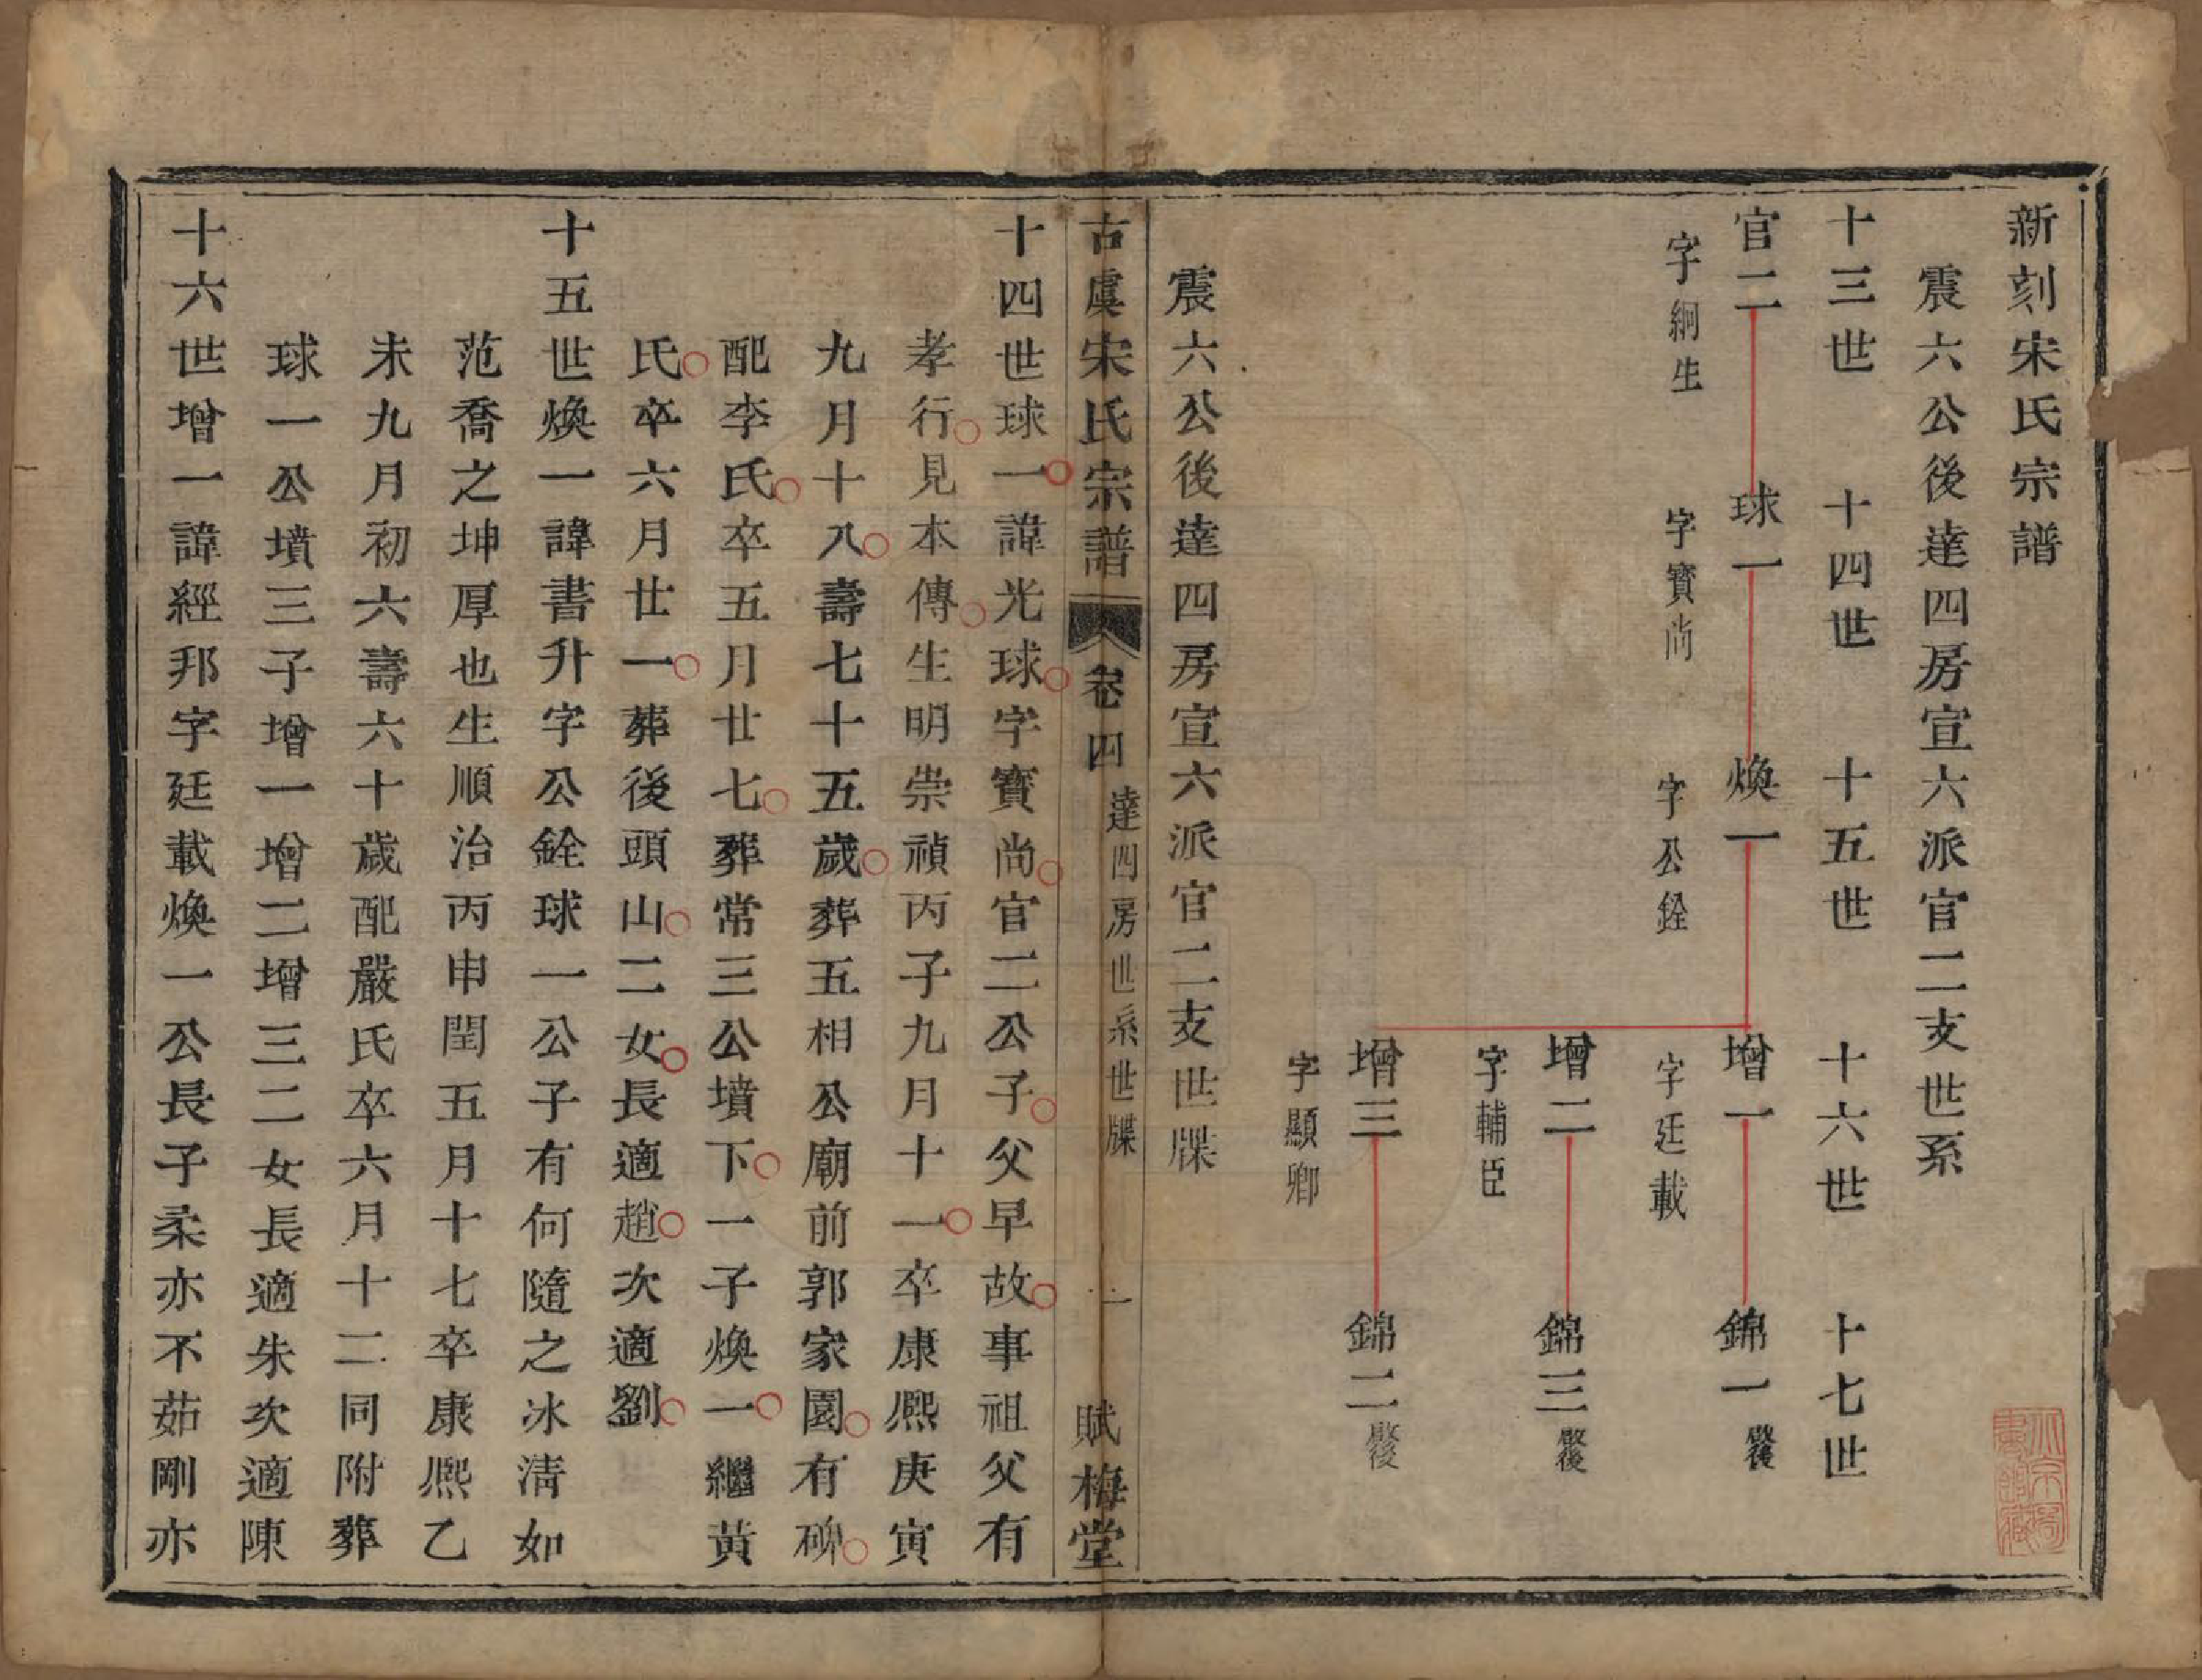 新刻宋氏宗譜
震六公後達四房宣六派官二支世系
十三世 十四世 十五世 十六世 十七世
官二 球一 煥一 增一 錦一 啟後
字絅生 字寶尚 字公銓 字廷載
增二 錦三 啟後
字輔臣
增三 錦二 啟後
字顯卿
震六公後達四房宣六派官二支世牒
古虞宋氏宗譜 卷四 達四房世系世牒 一 賦梅堂
十四世球一諱光球字寶尚官二公子父早故事祖父有
孝行見本傳生明崇禎丙子九月十一卒康熙庚寅
九月十八壽七十五歲葬五相公廟前郭家園有碑
配李氏卒五月廿七葬常三公墳下一子煥一繼黃
氏卒六月廿一葬後頭山二女長適趙次適劉
十五世煥一諱書升字公銓球一公子有何隨之冰清如
范喬之坤厚也生順治丙申閏五月十七卒康熙乙
未九月初六壽六十歲配嚴氏卒六月十二同附葬
球一公墳三子增一增二增三二女長適朱次適陳
十六世增一諱經邦字廷載煥一公長子柔亦不茹剛亦